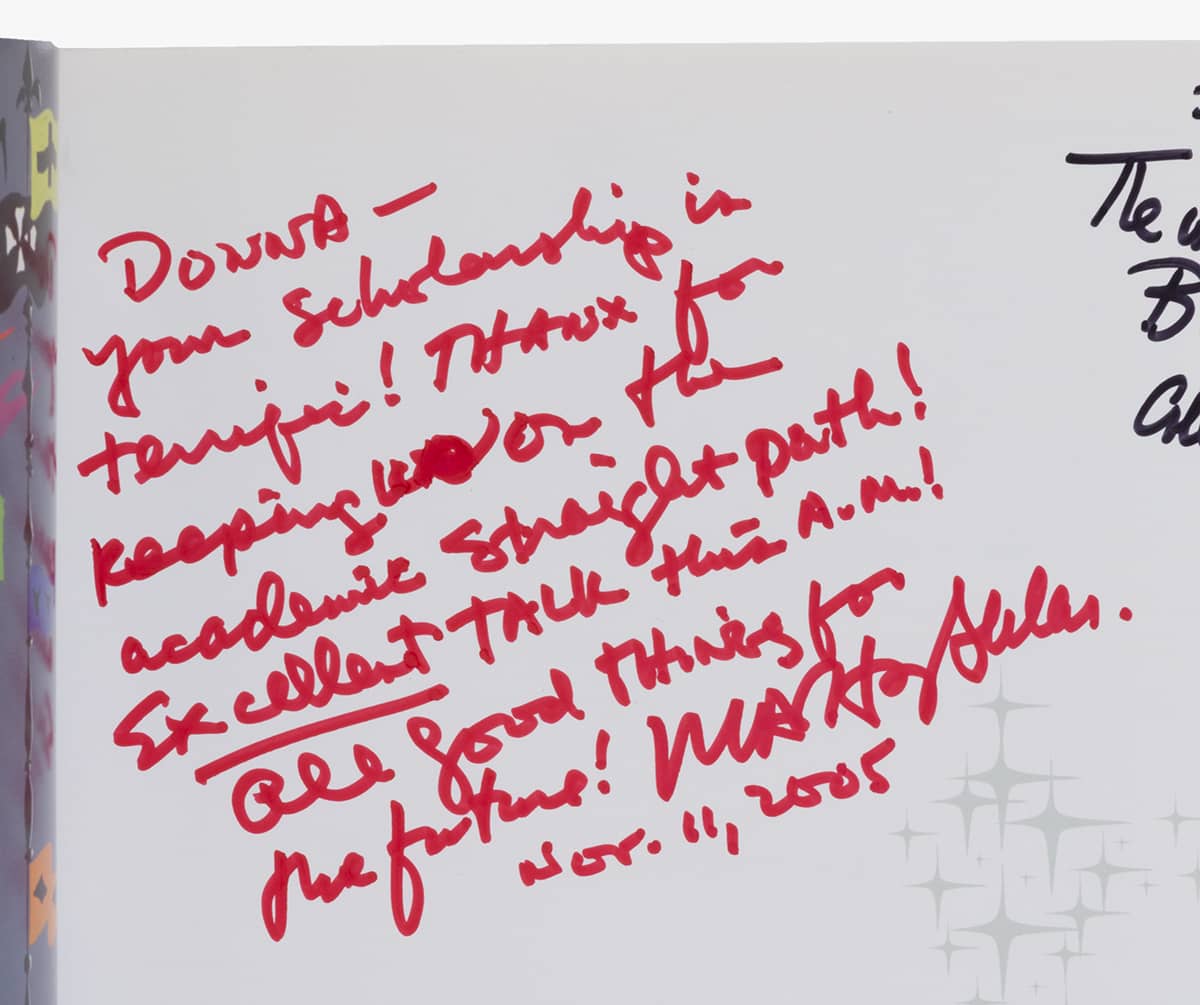 DONNA —
your Scholarship in
terrific! THANX for
keeping us on the
academic straight path!
Excellent TALK this A.M.!
All good THINGS for
the future! MARty Sklar.
Nov. 11, 2005
The
B